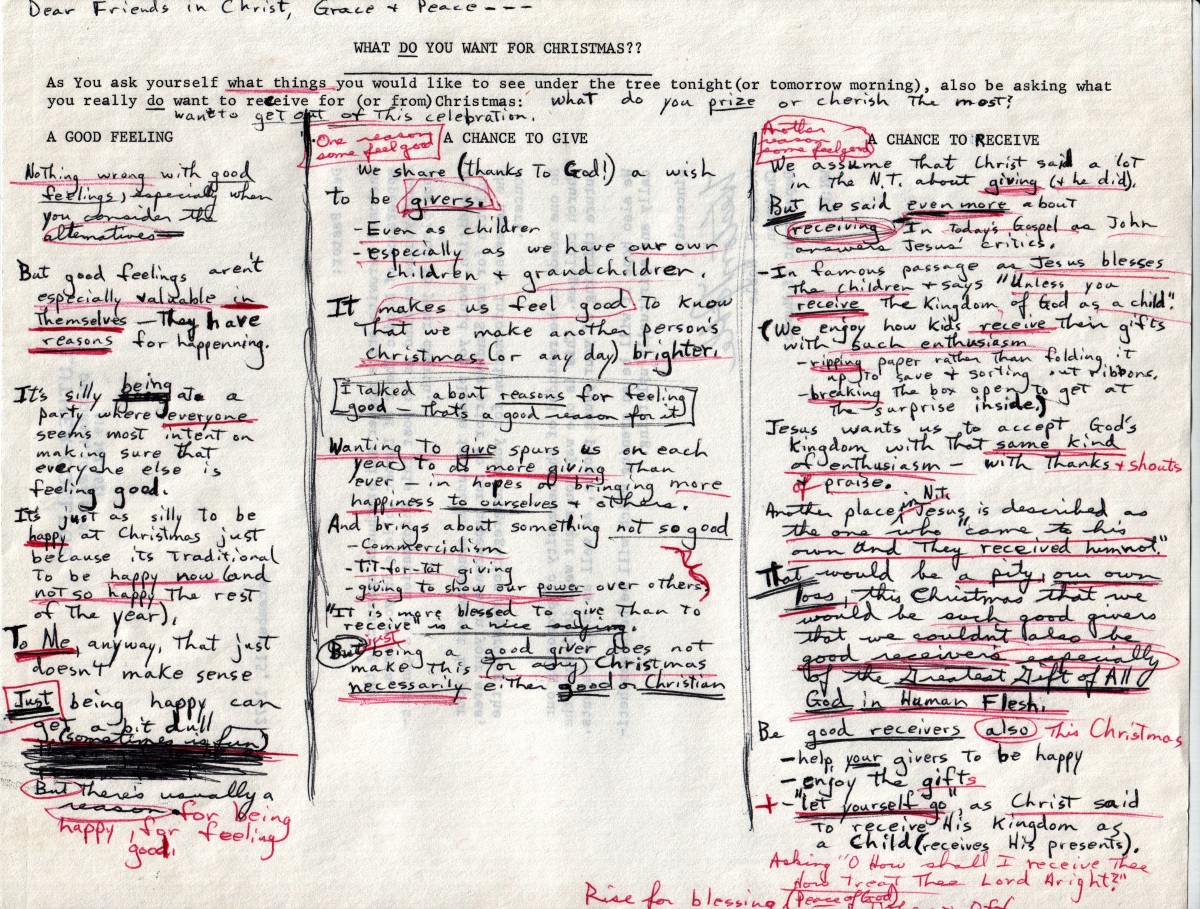 Dear Friends in Christ, Grace + Peace ---
WHAT DO YOU WANT FOR CHRISTMAS??
As You ask yourself what things you would like to see under the tree tonight(or tomorrow morning), also be asking what
you really do want to receive for (or from)Christmas: what do you prize or cherish the most?
want to get out of this celebration.
A GOOD FEELING
Nothing wrong with good
feelings, especially when
you consider the
alternatives
But good feelings aren't
especially valuable in
themselves - They have
reasons for happenning.
It's silly being at a
party where everyone
seems most intent on
making sure that
everyone else is
feeling good.
It's just as silly to be
happy at Christmas just
because its traditional
to be happy now (and
not so happy the rest
of the year),
To Me, anyway, that just
doesn't make sense
Just being happy can
get a bit dull
(sometimes is fun)
But There's usually a
reason for being
happy, for feeling
good.
One reason
some feel good
A CHANCE TO GIVE
We share (thanks To God!) a wish
to be givers.
-Even as children
-especially as we have our own
children + grandchildren.
It makes us feel good to know
That we make another person's
christmas (or any day) brighter.
I talked about reasons for feeling
good - that's a good reason for it
Wanting to give spurs us on each
year to do more giving than
ever - in hopes of bringing more
happiness to ourselves + others.
And brings about something not so good
-Commercialism
-tit-for-tat giving
-giving to show our power over others
"It is more blessed to give than to
receive" is a nice saying.
But just being a good giver does not
make this (or any) Christmas
necessarily either good or Christian
Another
reason
some feel good
A CHANCE TO RECEIVE
We assume That Christ said a lot
in the N.T. about giving (+ he did).
But he said even more about
receiving In Today's Gospel as John
answers Jesus' critics.
-In famous passage as Jesus blesses
The children + says "Unless you
receive the Kingdom of God as a child".
(We enjoy how kids receive their gifts
with such enthusiasm
-ripping paper rather than folding it
up to save + sorting out ribbons.
-breaking the box open to get at
the surprise inside.)
Jesus wants us to accept God's
Kingdom with that same kind
of enthusiasm - with thanks + shouts
of praise.
Another place in N.T. Jesus is described as
the one who "came to his
own and they received him not."
That would be a pity, our own
loss, this Christmas that we
would be such good givers
that we couldn't also be
good receivers especially
of the Greatest Gift of All
God in Human Flesh.
Be good receivers also This Christmas
-help your givers to be happy
-enjoy the gifts
+ -"let yourself go", as Christ said
to receive His Kingdom as
a Child (receives His presents).
Asking "O How shall I receive Thee
How treat Thee Lord Aright?"
Rise for blessing (Peace of God)